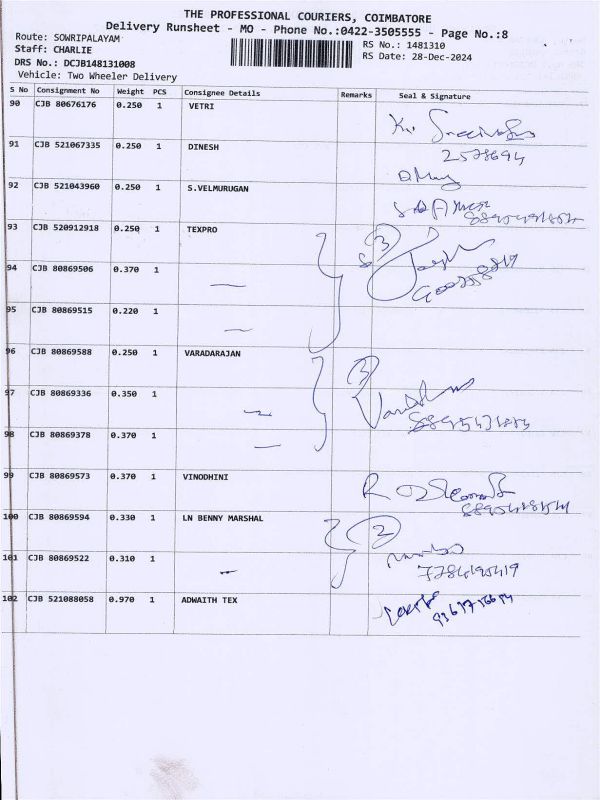 THE PROFESSIONAL COURIERS, COIMBATORE
Delivery Runsheet - MO - Phone No.:0422-3505555 - Page No.:8
Route: SOWRIPALAYAM
RS No.: 1481310
Staff: CHARLIE
RS Date: 28-Dec-2024
DRS No.: DCJB148131008
Vehicle: Two Wheeler Delivery
S No Consignment No Weight PCS Consignee Details Remarks Seal & Signature
90 CJB 80676176 0.250 1 VETRI
91 CJB 521067335 0.250 1 DINESH
2578694
92 CJB 521043960 0.250 1 S.VELMURUGAN
93 CJB 520912918 0.250 1 TEXPRO
3
94 CJB 80869506 0.370 1
95 CJB 80869515 0.220 1
96 CJB 80869588 0.250 1 VARADARAJAN
3
97 CJB 80869336 0.350 1
98 CJB 80869378 0.370 1
99 CJB 80869573 0.370 1 VINODHINI
100 CJB 80869594 0.330 1 LN BENNY MARSHAL
2
101 CJB 80869522 0.310 1
102 CJB 521088058 0.970 1 ADWAITH TEX